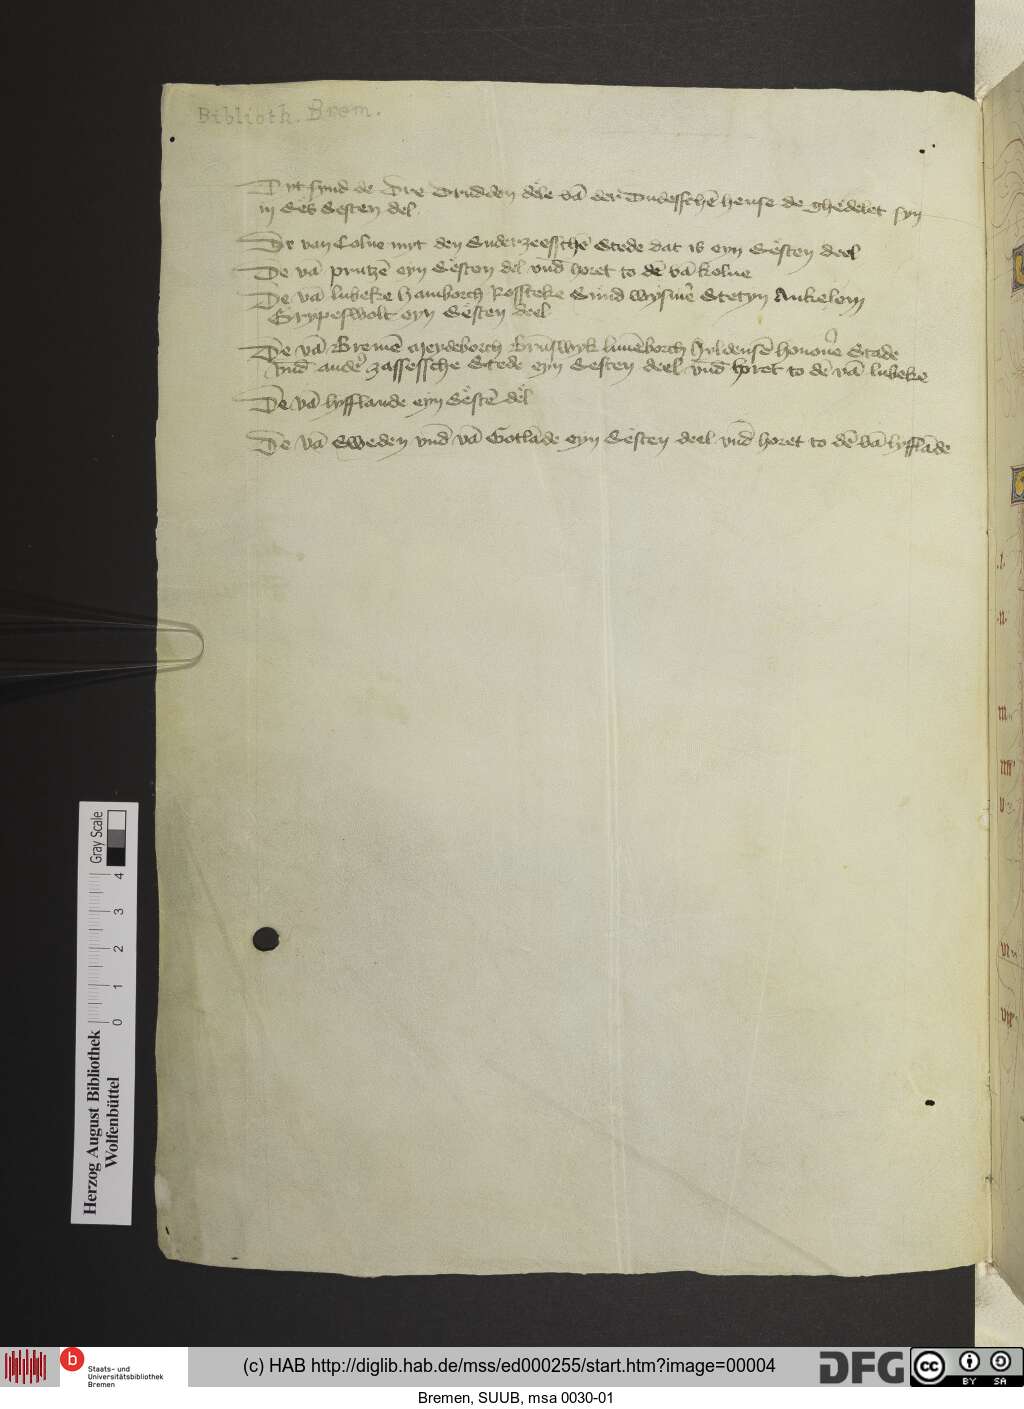 Biblioth. Brem.
Dyt synd de Dre Dridden dele vā der Dudesschē hense de ghedelet syn
in Ses Sesten del
De van Colne myt den Suderzeesschē Stede dat is eyn Sesten deel
De vā prutzē eyn Sesten del vnd horet to dē vā kolne
De vā lubeke hamborch Rosteke Sund wysmē Stetyn Ankelem
Grypeswolt eyn Sesten deel
De vā Bremē Merdeborch Brūswyk lunēborch hyldensē honouē Stade
vnd andē zassessche Stede eyn Sesten deel vnd horet to dē vā lubeke
De vā lyfflande eyn Sestē del
De vā Sweden vnd vā Gotlāde eyn Sesten deel vnd horet to dē vā lyfflāde
Herzog August Bibliothek
Wolfenbüttel
0 1 2 3 4
Gray Scale
b
Staats- und
Universitätsbibliothek
Bremen
(c) HAB http://diglib.hab.de/mss/ed000255/start.htm?image=00004
DFG
cc BY SA
Bremen, SUUB, msa 0030-01